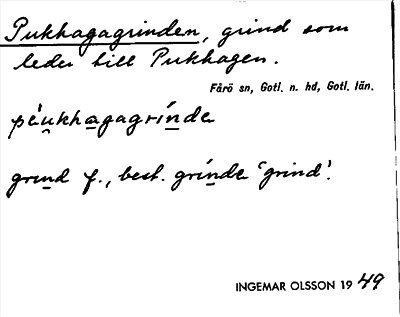 Pukhagagrinden, grind som
leder till Pukhagen.
Fårö sn, Gotl. n. hd, Gotl. län.
pé̯ukha̲gagrín̲de
grin̲d f., best. grín̲de 'grind'.
INGEMAR OLSSON 1949